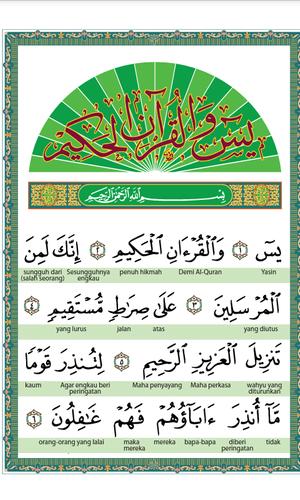 يس والقرآن الحكيم
بِسْمِ اللَّهِ الرَّحْمَٰنِ الرَّحِيمِ
يسٓ ۝١ وَالْقُرْءَانِ الْحَكِيمِ ۝٢ إِنَّكَ لَمِنَ
Yasin Demi Al-Quran penuh hikmah Sesungguhnya engkau sungguh dari (salah seorang)
الْمُرْسَلِينَ ۝٣ عَلَىٰ صِرَاطٍ مُّسْتَقِيمٍ ۝٤
yang diutus atas jalan yang lurus
تَنزِيلَ الْعَزِيزِ الرَّحِيمِ ۝٥ لِتُنذِرَ قَوْمًا
wahyu yang diturunkan Maha perkasa Maha penyayang Agar engkau beri peringatan kaum
مَّآ أُنذِرَ ءَابَآؤُهُمْ فَهُمْ غَٰفِلُونَ ۝٦
tidak diberi peringatan bapa-bapa mereka maka mereka orang-orang yang lalai